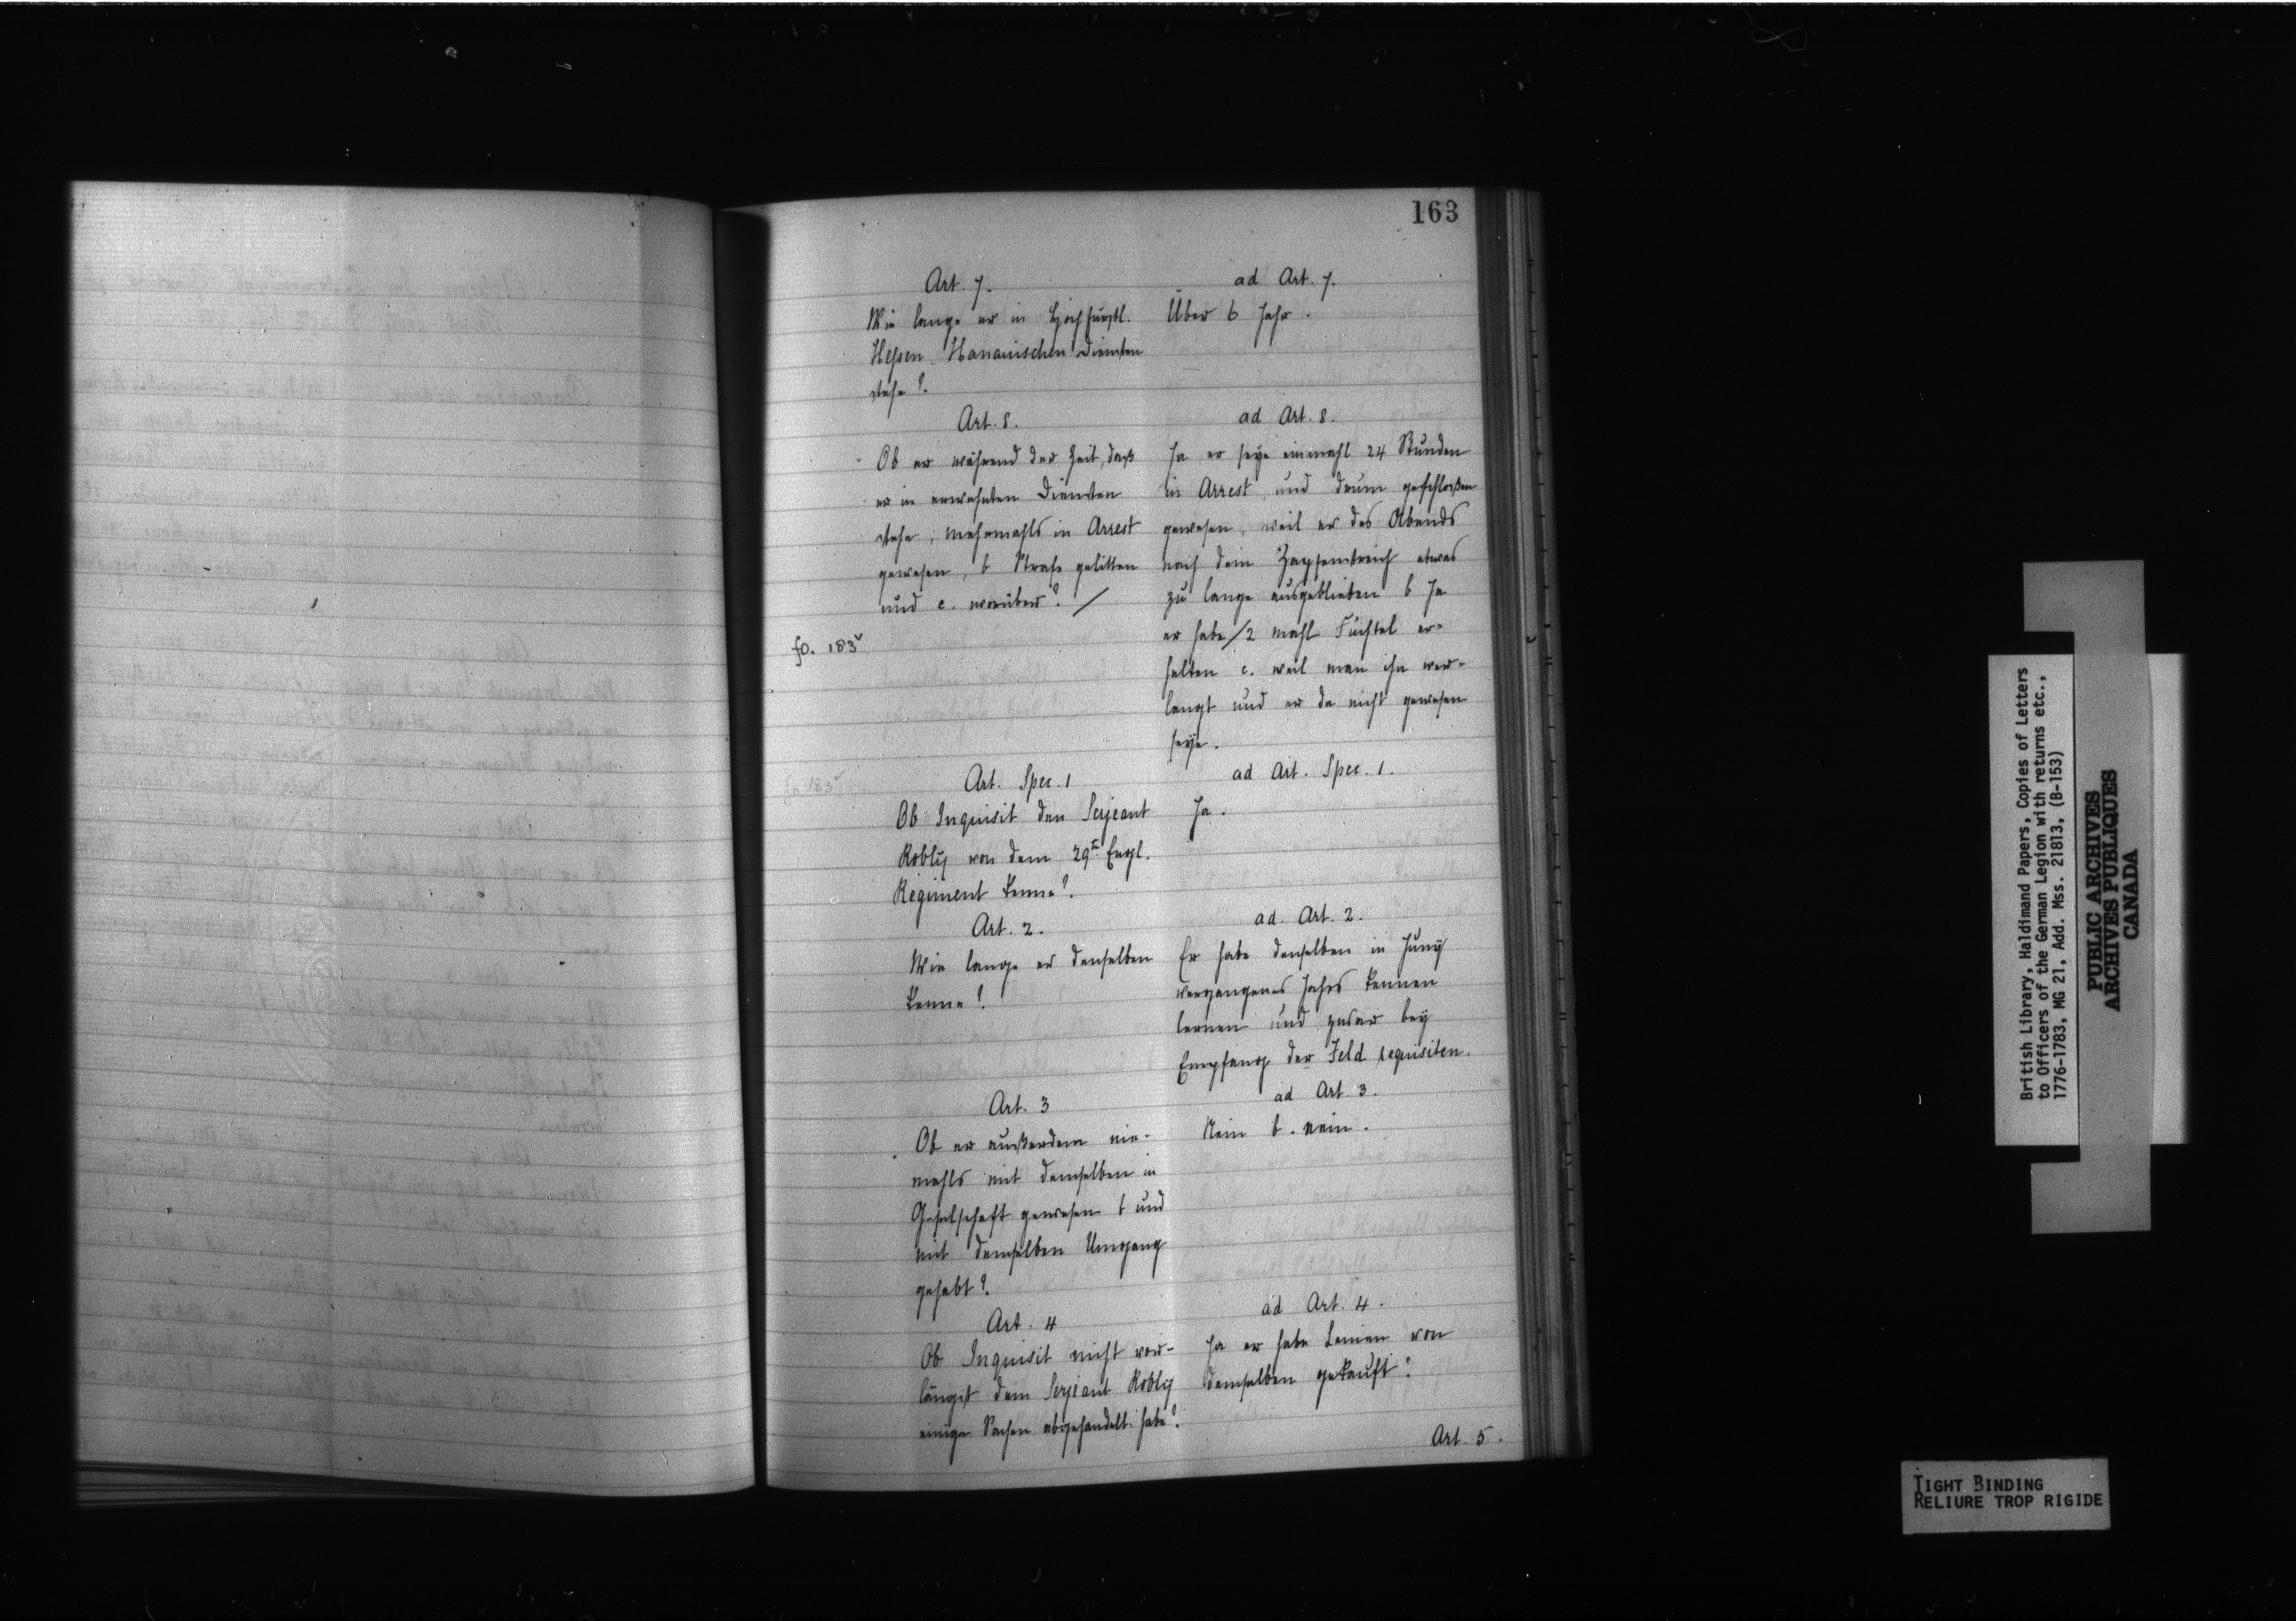 163
Art. 7.
Wie lange er in Hochfürstl.
Hessen Hanauischen Diensten
stehe?
ad Art. 7.
Über 6 Jahr.
Art. 8.
Ob er während der Zeit, daß
er in erwehnten Diensten
stehe, mehrmahls in Arrest
gewesen, b Strafe gelitten
und c. worüber? /
fo. 183v
ad Art. 8.
Ja er seye einmahl 24 Stunden
in Arrest, und drum geschloßen
gewesen, weil er des Abends
nach dem Zapfenstreich etwas
zu lange ausgeblieben b Ja
er habe / 2 mahl Fuchtel er-
halten c. weil man ihn ver-
langt und er da nicht gewesen
seye.
fo 183v
Art. Spec. 1
Ob Inquisit den Serjeant
Robly von dem 29t Engl.
Regiment kenne?
ad Art. Spec. 1.
Ja.
Art. 2.
Wie lange er denselben
kenne?
ad. Art. 2.
Er habe denselben in Juny
vergangenes Jahrs kennen
lernen und zwar bey
Empfang der Feld requisiten.
Art. 3
Ob er außerdem nie-
mahls mit demselben in
Geselschaft gewesen b und
mit demselben Umgang
gehabt?
ad Art. 3.
Nein b. nein.
Art. 4
Ob Inquisit nicht vor-
längst dem Serjeant Robly
einige Sachen abgehandelt habe?
ad Art. 4.
Ja er habe Leinen von
demselben gekauft.
Art. 5.
British Library, Haldimand Papers, Copies of Letters
to Officers of the German Legion with returns etc.,
1776-1783, MG 21, Add. Mss. 21813, (B-153)
PUBLIC ARCHIVES
ARCHIVES PUBLIQUES
CANADA
TIGHT BINDING
RELIURE TROP RIGIDE